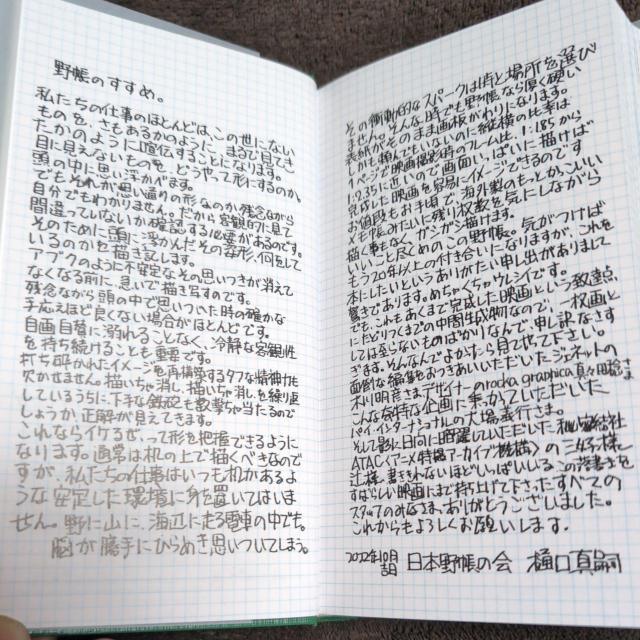 野帳のすすめ。
私たちの仕事のほとんどは、この世にない
ものを、さもあるかのように、まるで見てき
たかのように喧伝することになります。
目に見えないものを、どうやって形にするのか。
頭の中に思い浮かべます。
でもそれが思い通りの形なのか残念ながら
自分でもわかりません。だから客観的に見て
間違っていないか確認する必要があるのです。
そのために頭に浮かんだその姿形、何をして
いるのかを描き記します。
アブクのように不安定なその思いつきが消えて
なくなる前に、急いで描き写すのです。
残念ながら頭の中で思いついた時の確かな
手応えほど良くない場合がほとんどです。
自画自賛に溺れることなく、冷静な客観性
を持ち続けることも重要です。
打ち砕かれたイメージを再構築するタフな精神力も
欠かせません。描いちゃ消し、描いちゃ消しを繰り返
しているうちに下手な鉄砲も数撃ちゃ当たるので
しょうか、正解が見えてきます。
これならイケるぜ、って形を把握できるように
なります。通常は机の上で描くべきなので
すが、私たちの仕事はいつも机があるよ
うな安定した環境に身を置いてはいま
せん。野に山に、海辺に走る電車の中でも。
脳が勝手にひらめき思いついてしまう。
その衝動的なスパークは時と場所を選び
ません。そんな時でも野帳なら厚く硬い
表紙がそのまま画板がわりになります。
しかも頼んでもいないのに縦横の比率は
1ページで映画撮影時のフレーム比、1:1.85から
1:2.35に近いので画面いっぱいに描けば
完成した映画を容易にイメージできるのです
お値段もお手頃で海外製のもっとかっこいい
メモ帳みたいに残り枚数を気にしながら
描く事もなくガシガシ描けます。
いいこと尽くめのこの野帳。気がつけば
もう20年以上の付き合いになりますが、これを
本にしたいというありがたい申し出がありまして
驚きであります。めちゃくちゃウレシイです。
でもこれもあくまで完成した映画という到達点
にたどりつくまでの中間生成物なので、一枚画と
しては至らないものばかりなんで、申し訳なさす
ぎます。そんなんでよかったら見てやって下さい。
面倒な編集をおつきあいいただいたジェネットの
木川明彦さま、デザイナーのrocka graphica真々田稔さま
こんな奇特な企画に乗っかっていただいた
パイ インターナショナルの大場義行さま。
そして影に日向に暗躍していただいた秘密結社
ATAC(アニメ特撮アーカイブ機構)の三好さま
辻様、書ききれないほどいっぱいいる、この落書きを
すばらしい映画にまで持ち上げて下さったすべての
スタッフのみなさま、ありがとうございました。
これからもよろしくお願いします。
2022年10月
日本野帳の会 樋口真嗣